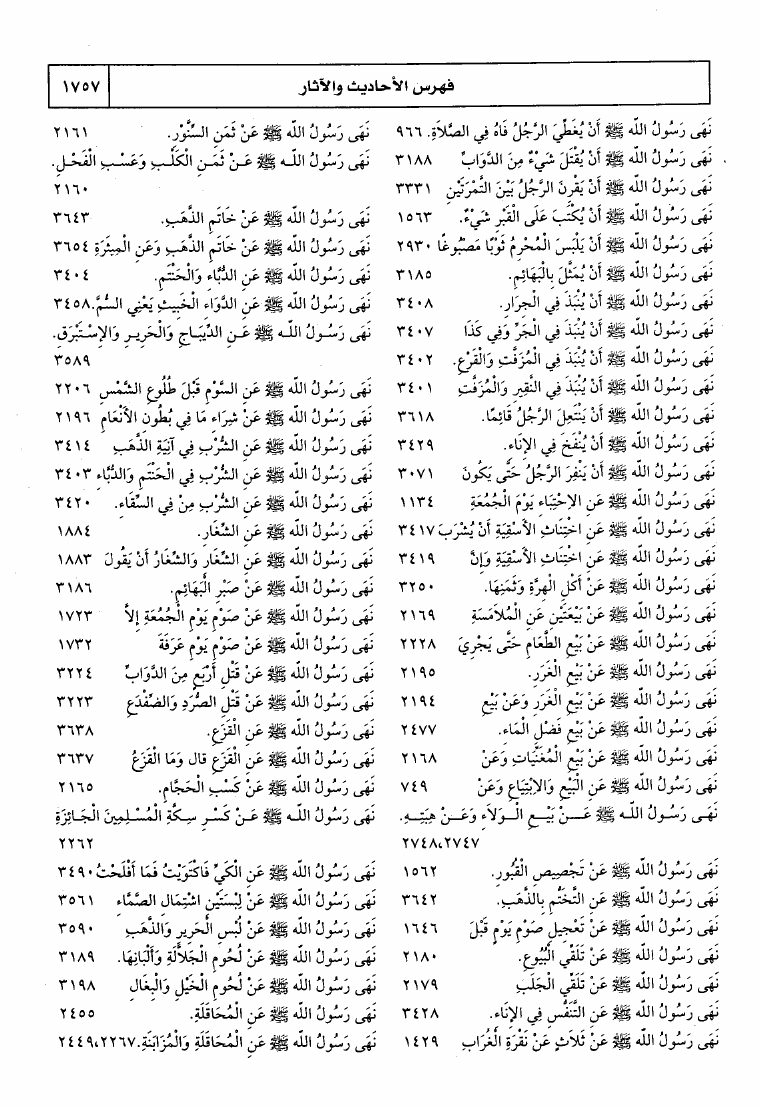 فهرس الأحاديث والآثار
١٧٥٧
نَهَى رَسُولُ اللّه ﷺ أَنْ يُغَطِّيَ الرَّجُلُ فَاهُ فِي الصَّلاَةِ. ٩٦٦
نَهَى رَسُولُ اللّه ﷺ أَنْ يُقْتَلَ شَيْءٌ مِنَ الدَّوَابِّ ٣١٨٨
نَهَى رَسُولُ اللّه ﷺ أَنْ يَقْرِنَ الرَّجُلُ بَيْنَ التَّمْرَتَيْنِ ٣٣٣١
نَهَى رَسُولُ اللّه ﷺ أَنْ يُكْتَبَ عَلَى الْقَبْرِ شَيْءٌ. ١٥٦٣
نَهَى رَسُولُ اللّه ﷺ أَنْ يَلْبَسَ الْمُحْرِمُ ثَوْبًا مَصْبُوغًا ٢٩٣٠
نَهَى رَسُولُ اللّه ﷺ أَنْ يُمَثَّلَ بِالْبَهَائِمِ. ٣١٨٥
نَهَى رَسُولُ اللّه ﷺ أَنْ يُنْبَذَ فِي الْجِرَارِ. ٣٤٠٨
نَهَى رَسُولُ اللّه ﷺ أَنْ يُنْبَذَ فِي الْجَرِّ وَفِي كَذَا ٣٤٠٧
نَهَى رَسُولُ اللّه ﷺ أَنْ يُنْبَذَ فِي الْمُزَفَّتِ وَالْقَرْعِ. ٣٤٠٢
نَهَى رَسُولُ اللّه ﷺ أَنْ يُنْبَذَ فِي النَّقِيرِ وَالْمُزَفَّتِ ٣٤٠١
نَهَى رَسُولُ اللّه ﷺ أَنْ يَنْتَعِلَ الرَّجُلُ قَائِمًا. ٣٦١٨
نَهَى رَسُولُ اللّه ﷺ أَنْ يُنْفَخَ فِي الإِنَاءِ. ٣٤٢٩
نَهَى رَسُولُ اللّه ﷺ أَنْ يَنْفِرَ الرَّجُلُ حَتَّى يَكُونَ ٣٠٧١
نَهَى رَسُولُ اللّه ﷺ عَنِ الإِحْتِبَاءِ يَوْمَ الْجُمُعَةِ ١١٣٤
نَهَى رَسُولُ اللّه ﷺ عَنِ اخْتِنَاثِ الأَسْقِيَةِ أَنْ يُشْرَبَ ٣٤١٧
نَهَى رَسُولُ اللّه ﷺ عَنِ اخْتِنَاثِ الأَسْقِيَةِ وَإِنَّ ٣٤١٩
نَهَى رَسُولُ اللّه ﷺ عَنْ أَكْلِ الْهِرَّةِ وَثَمَنِهَا. ٣٢٥٠
نَهَى رَسُولُ اللّه ﷺ عَنْ بَيْعَتَيْنِ عَنِ الْمُلاَمَسَةِ ٢١٦٩
نَهَى رَسُولُ اللّه ﷺ عَنْ بَيْعِ الطَّعَامِ حَتَّى يَجْرِيَ ٢٢٢٨
نَهَى رَسُولُ اللّه ﷺ عَنْ بَيْعِ الْغَرَرِ. ٢١٩٥
نَهَى رَسُولُ اللّه ﷺ عَنْ بَيْعِ الْغَرَرِ وَعَنْ بَيْعِ ٢١٩٤
نَهَى رَسُولُ اللّه ﷺ عَنْ بَيْعِ فَضْلِ الْمَاءِ. ٢٤٧٧
نَهَى رَسُولُ اللّه ﷺ عَنْ بَيْعِ الْمُغَنِّيَاتِ وَعَنْ ٢١٦٨
نَهَى رَسُولُ اللّه ﷺ عَنِ الْبَيْعِ وَالاِبْتِيَاعِ وَعَنْ ٧٤٩
نَهَى رَسُولُ اللّه ﷺ عَنْ بَيْعِ الْوَلاَءِ وَعَنْ هِبَتِهِ.
٢٧٤٨،٢٧٤٧
نَهَى رَسُولُ اللّه ﷺ عَنْ تَجْصِيصِ الْقُبُورِ. ١٥٦٢
نَهَى رَسُولُ اللّه ﷺ عَنِ التَّخَتُّمِ بِالذَّهَبِ. ٣٦٤٢
نَهَى رَسُولُ اللّه ﷺ عَنْ تَعْجِيلِ صَوْمِ يَوْمٍ قَبْلَ ١٦٤٦
نَهَى رَسُولُ اللّه ﷺ عَنْ تَلَقِّي الْبُيُوعِ. ٢١٨٠
نَهَى رَسُولُ اللّه ﷺ عَنْ تَلَقِّي الْجَلَبِ ٢١٧٩
نَهَى رَسُولُ اللّه ﷺ عَنِ التَّنَفُّسِ فِي الإِنَاءِ. ٣٤٢٨
نَهَى رَسُولُ اللّه ﷺ عَنْ ثَلاَثٍ عَنْ نَقْرَةِ الْغُرَابِ ١٤٢٩
نَهَى رَسُولُ اللّه ﷺ عَنْ ثَمَنِ السِّنَّوْرِ. ٢١٦١
نَهَى رَسُولُ اللّه ﷺ عَنْ ثَمَنِ الْكَلْبِ وَعَسْبِ الْفَحْلِ.
٢١٦٠
نَهَى رَسُولُ اللّه ﷺ عَنْ خَاتَمِ الذَّهَبِ. ٣٦٤٣
نَهَى رَسُولُ اللّه ﷺ عَنْ خَاتَمِ الذَّهَبِ وَعَنِ الْمِيثَرَةِ ٣٦٥٤
نَهَى رَسُولُ اللّه ﷺ عَنِ الدُّبَّاءِ وَالْحَنْتَمِ. ٣٤٠٤
نَهَى رَسُولُ اللّه ﷺ عَنِ الدَّوَاءِ الْخَبِيثِ يَعْنِي السُّمَّ. ٣٤٥٨
نَهَى رَسُولُ اللّه ﷺ عَنِ الدِّيبَاجِ وَالْحَرِيرِ وَالإِسْتَبْرَقِ.
٣٥٨٩
نَهَى رَسُولُ اللّه ﷺ عَنِ السَّوْمِ قَبْلَ طُلُوعِ الشَّمْسِ ٢٢٠٦
نَهَى رَسُولُ اللّه ﷺ عَنْ شِرَاءِ مَا فِي بُطُونِ الأَنْعَامِ ٢١٩٦
نَهَى رَسُولُ اللّه ﷺ عَنِ الشُّرْبِ فِي آنِيَةِ الذَّهَبِ ٣٤١٤
نَهَى رَسُولُ اللّه ﷺ عَنِ الشُّرْبِ فِي الْحَنْتَمِ وَالدُّبَّاءِ ٣٤٠٣
نَهَى رَسُولُ اللّه ﷺ عَنِ الشُّرْبِ مِنْ فِي السِّقَاءِ. ٣٤٢٠
نَهَى رَسُولُ اللّه ﷺ عَنِ الشِّغَارِ. ١٨٨٤
نَهَى رَسُولُ اللّه ﷺ عَنِ الشِّغَارِ وَالشِّغَارُ أَنْ يَقُولَ ١٨٨٣
نَهَى رَسُولُ اللّه ﷺ عَنْ صَبْرِ الْبَهَائِمِ. ٣١٨٦
نَهَى رَسُولُ اللّه ﷺ عَنْ صَوْمِ يَوْمِ الْجُمُعَةِ إِلاَّ ١٧٢٣
نَهَى رَسُولُ اللّه ﷺ عَنْ صَوْمِ يَوْمِ عَرَفَةَ ١٧٣٢
نَهَى رَسُولُ اللّه ﷺ عَنْ قَتْلِ أَرْبَعٍ مِنَ الدَّوَابِّ ٣٢٢٤
نَهَى رَسُولُ اللّه ﷺ عَنْ قَتْلِ الصُّرَدِ وَالضِّفْدَعِ ٣٢٢٣
نَهَى رَسُولُ اللّه ﷺ عَنِ الْقَزَعِ. ٣٦٣٨
نَهَى رَسُولُ اللّه ﷺ عَنِ الْقَزَعِ قال وَمَا الْقَزَعُ ٣٦٣٧
نَهَى رَسُولُ اللّه ﷺ عَنْ كَسْبِ الْحَجَّامِ. ٢١٦٥
نَهَى رَسُولُ اللّه ﷺ عَنْ كَسْرِ سِكَّةِ الْمُسْلِمِينَ الْجَائِزَةِ
٢٢٦٢
نَهَى رَسُولُ اللّه ﷺ عَنِ الْكَيِّ فَاكْتَوَيْتُ فَمَا أَفْلَحْتُ ٣٤٩٠
نَهَى رَسُولُ اللّه ﷺ عَنْ لِبْسَتَيْنِ اشْتِمَالِ الصَّمَّاءِ ٣٥٦١
نَهَى رَسُولُ اللّه ﷺ عَنْ لُبْسِ الْحَرِيرِ وَالذَّهَبِ ٣٥٩٠
نَهَى رَسُولُ اللّه ﷺ عَنْ لُحُومِ الْجَلاَّلَةِ وَأَلْبَانِهَا. ٣١٨٩
نَهَى رَسُولُ اللّه ﷺ عَنْ لُحُومِ الْخَيْلِ وَالْبِغَالِ ٣١٩٨
نَهَى رَسُولُ اللّه ﷺ عَنِ الْمُحَاقَلَةِ. ٢٤٥٥
نَهَى رَسُولُ اللّه ﷺ عَنِ الْمُحَاقَلَةِ وَالْمُزَابَنَةِ. ٢٤٤٩،٢٢٦٧